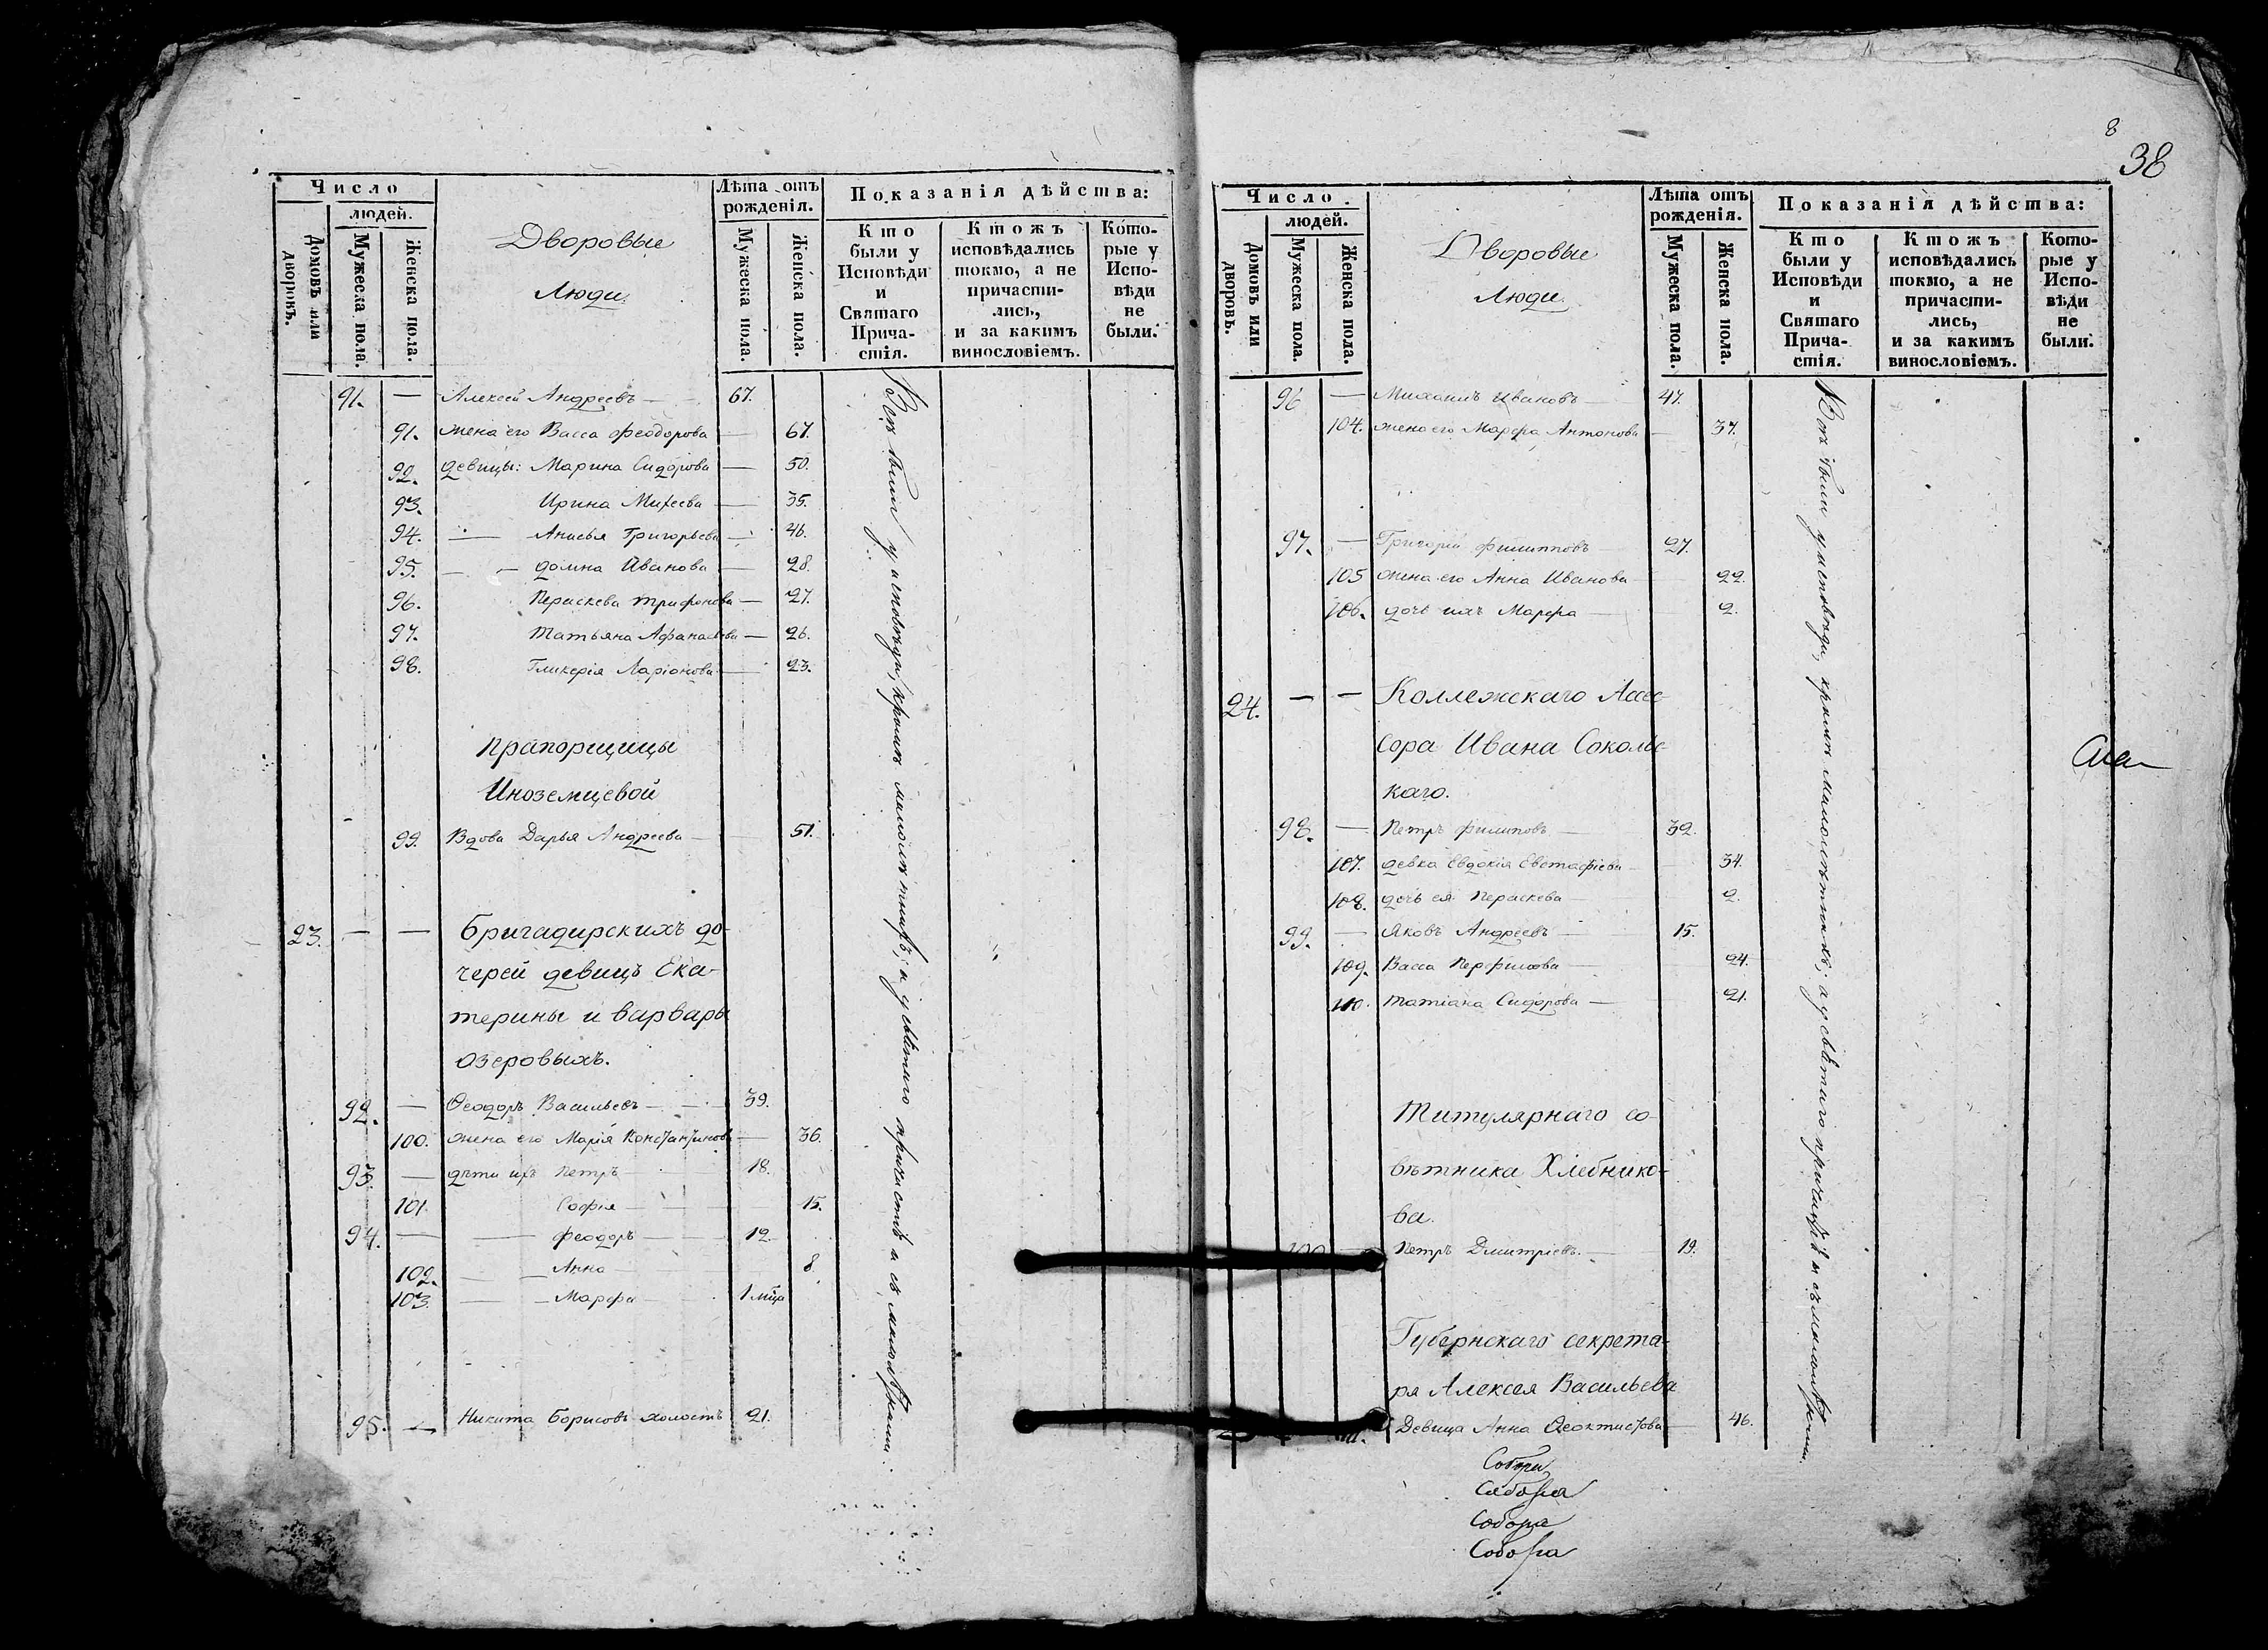 Число
Лѣта отъ рожденія.
Показанія дѣйства:
Домовъ или дворовъ.
людей.
Мужеска пола.
Женска пола.
Дворовые
Люди.
Мужеска пола.
Женска пола.
Кто были у Исповѣди и Святаго Причастія.
Ктожъ исповѣдались токмо, а не причастились, и за какимъ винословіемъ.
Которые у Исповѣди не были.
91. — Алексей Андреевъ — 67.
91. жена его Васса Феодорова — 67.
92. девицы: Марина Сидорова — 50.
93. Ирина Михеева — 35.
94. — Анисья Григорьева — 46.
95. — — Домна Иванова — 28.
96. Пераскева Трифонова — 27.
97. Татьяна Афанасьева — 26.
98. Гликерія Ларіонова — 23.
Прапорщицы
Иноземцевой
99. Вдова Дарья Андреева — 51.
23. — — Бригадирскихъ до-
черей девицъ Ека-
терины и Варвары
Озеровыхъ.
92. — Ѳеодоръ Васильевъ — 39.
100. жена его Марія Константинова — 36.
93. — дѣти ихъ Петръ 18.
101. Софія — 15.
94. — — Феодоръ — 12.
102. — — Анна — 8.
103. — — Марфа — 1 мца
95. — Никита Борисовъ холостъ 21.
Всѣ были у исповѣди, кромѣ малолѣтныхъ, а у святаго причастія и съ малолѣтными.
8
38
Число
Лѣта отъ рожденія.
Показанія дѣйства:
Домовъ или дворовъ.
людей.
Мужеска пола.
Женска пола.
Дворовые
Люди.
Мужеска пола.
Женска пола.
Кто были у Исповѣди и Святаго Причастія.
Ктожъ исповѣдались токмо, а не причастились, и за какимъ винословіемъ.
Которые у Исповѣди не были.
96 — Михаилъ Ивановъ — 47.
104. жена его Марфа Антонова — 37.
97. — Григорій Филипповъ — 27.
105 жена его Анна Иванова — 22.
106. дочь ихъ Марфа — 2.
24. — — Коллежскаго Ассес-
сора Ивана Сокольс-
каго.
98. — Петръ Филиповъ — 32.
107. девка Евдокія Евстафіева — 34.
108. дочь ея Пераскева — 2.
99. — Яковъ Андреевъ — 15.
109. Васса Перфилова — 24.
110. Татіана Сидорова — 21.
Титулярнаго со-
вѣтника Хлебнико-
ва.
100 — Петръ Дмитріевъ. — 19.
Губернскаго секрета-
ря Алексея Васильева
111. Девица Анна Ѳеоктистова — 46.
Всѣ были у исповѣди, кромѣ малолѣтныхъ, а у святаго причастія и съ малолѣтными.
Собора
Собора
Собора
Собора